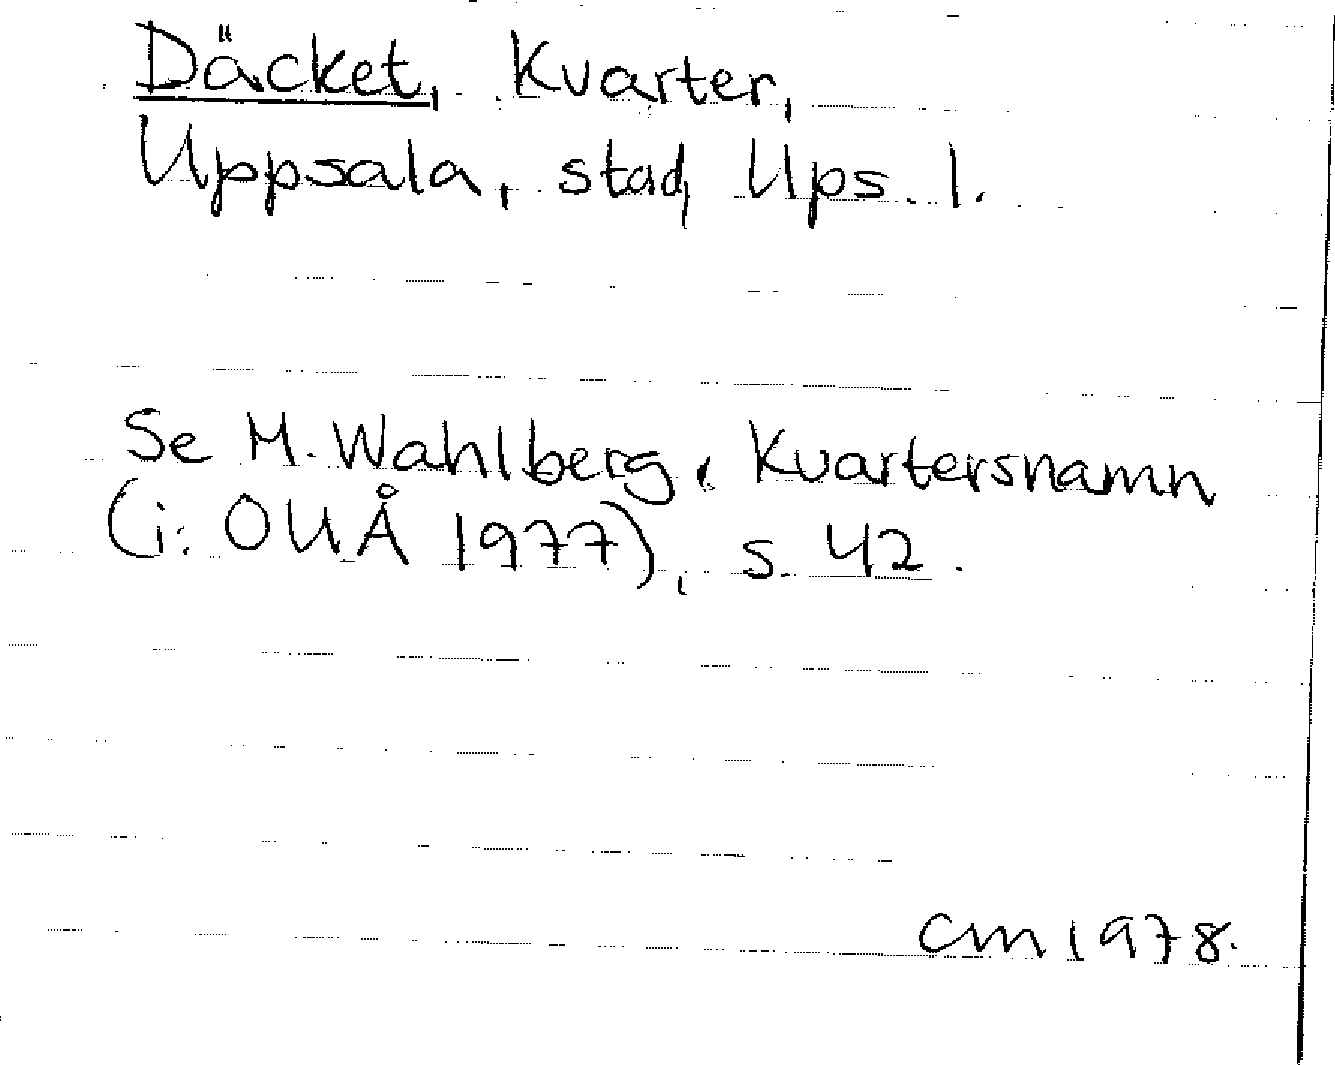 Däcket, Kvarter,
Uppsala, stad, Ups. l.
Se M. Wahlberg, Kvartersnamn
(i: OUÅ 1977), s. 42.
CM 1978.